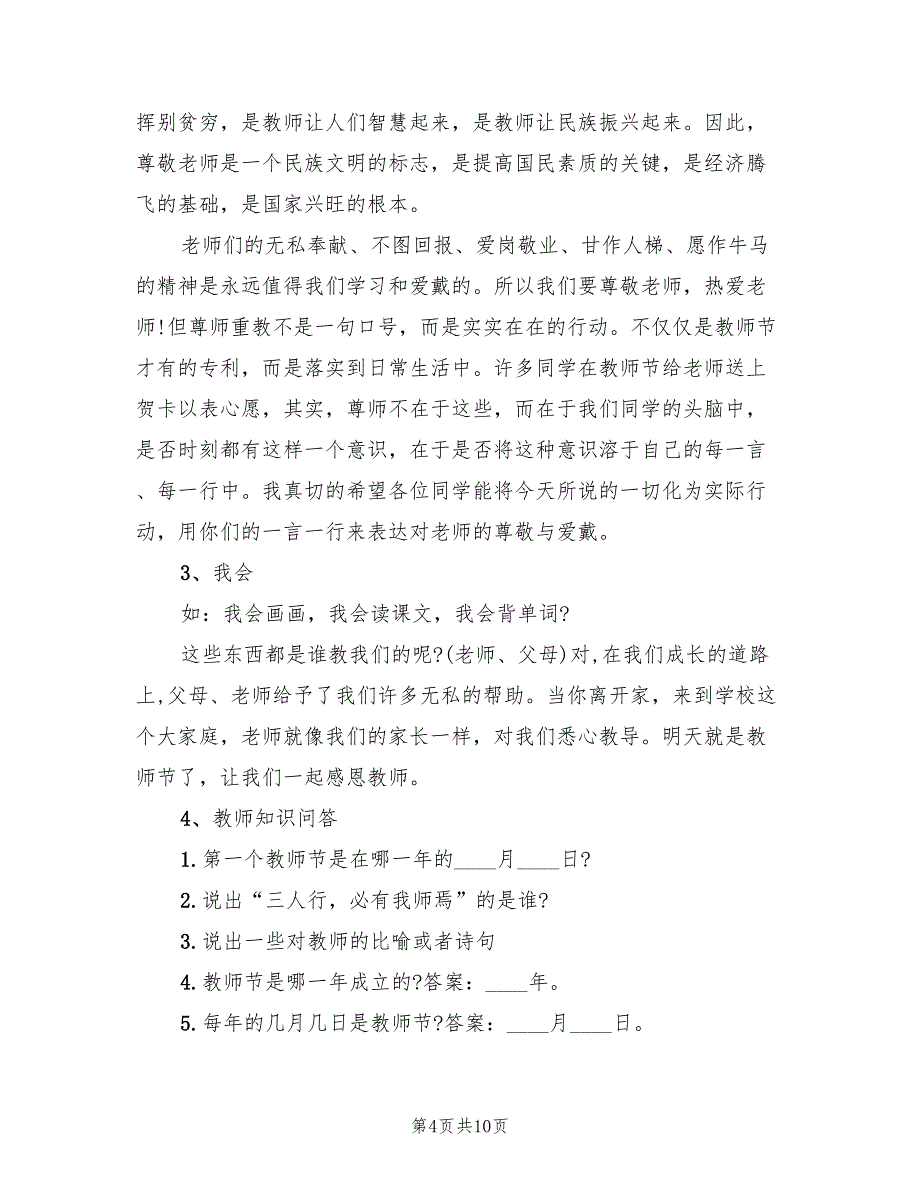 挥别贫穷，是教师让人们智慧起来，是教师让民族振兴起来。因此，
尊敬老师是一个民族文明的标志，是提高国民素质的关键，是经济腾
飞的基础，是国家兴旺的根本。
老师们的无私奉献、不图回报、爱岗敬业、甘作人梯、愿作牛马
的精神是永远值得我们学习和爱戴的。所以我们要尊敬老师，热爱老
师!但尊师重教不是一句口号，而是实实在在的行动。不仅仅是教师节
才有的专利，而是落实到日常生活中。许多同学在教师节给老师送上
贺卡以表心愿，其实，尊师不在于这些，而在于我们同学的头脑中，
是否时刻都有这样一个意识，在于是否将这种意识溶于自己的每一言
、每一行中。我真切的希望各位同学能将今天所说的一切化为实际行
动，用你们的一言一行来表达对老师的尊敬与爱戴。
3、我会
如：我会画画，我会读课文，我会背单词?
这些东西都是谁教我们的呢?(老师、父母)对,在我们成长的道路
上,父母、老师给予了我们许多无私的帮助。当你离开家，来到学校这
个大家庭，老师就像我们的家长一样，对我们悉心教导。明天就是教
师节了，让我们一起感恩教师。
4、教师知识问答
1.第一个教师节是在哪一年的____月____日?
2.说出“三人行，必有我师焉”的是谁?
3.说出一些对教师的比喻或者诗句
4.教师节是哪一年成立的?答案：____年。
5.每年的几月几日是教师节?答案：____月____日。
第4页共10页